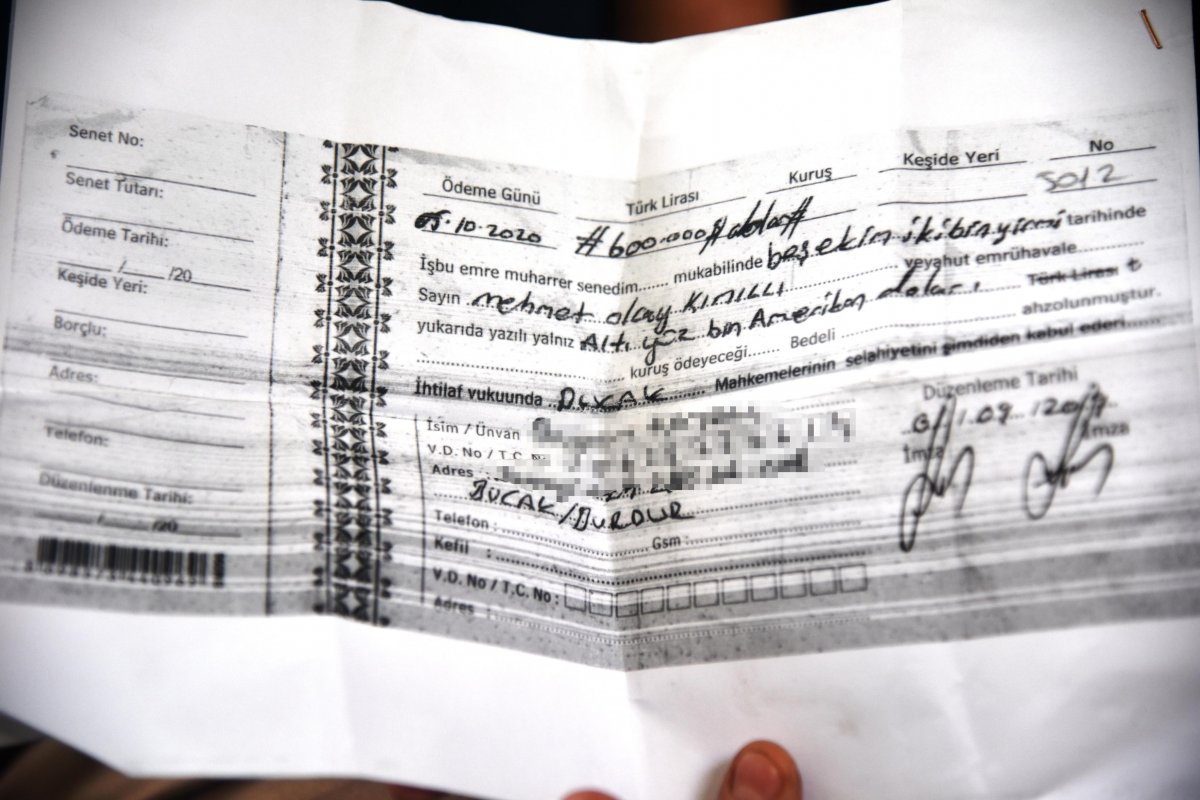 Senet No:
Senet Tutarı:
Ödeme Tarihi:
___/___/20___
Keşide Yeri:
Borçlu:
Adres:
Telefon:
Düzenlenme Tarihi:
___/___/20___
Ödeme Günü Türk Lirası Kuruş Keşide Yeri No
05.10.2020 #600.000# dolar# 5012
İşbu emre muharrer senedim...... mukabilinde beş ekim ikibinyirmi tarihinde
Sayın mehmet olcay Kınıllı veyahut emrühavale
yukarıda yazılı yalnız Altı yüz bin Amerikan doları Türk Lirası
kuruş ödeyeceği...... Bedeli ahzolunmuştur.
İhtilaf vukuunda BUCAK Mahkemelerinin selahiyetini şimdiden kabul ederi
Düzenleme Tarihi
İsim / Ünvan
V.D. No / T.C.
Adres :
İmza İmza
BUCAK/BURDUR
Telefon : Gsm :
Kefil :
V.D. No / T.C. No :
Adres :